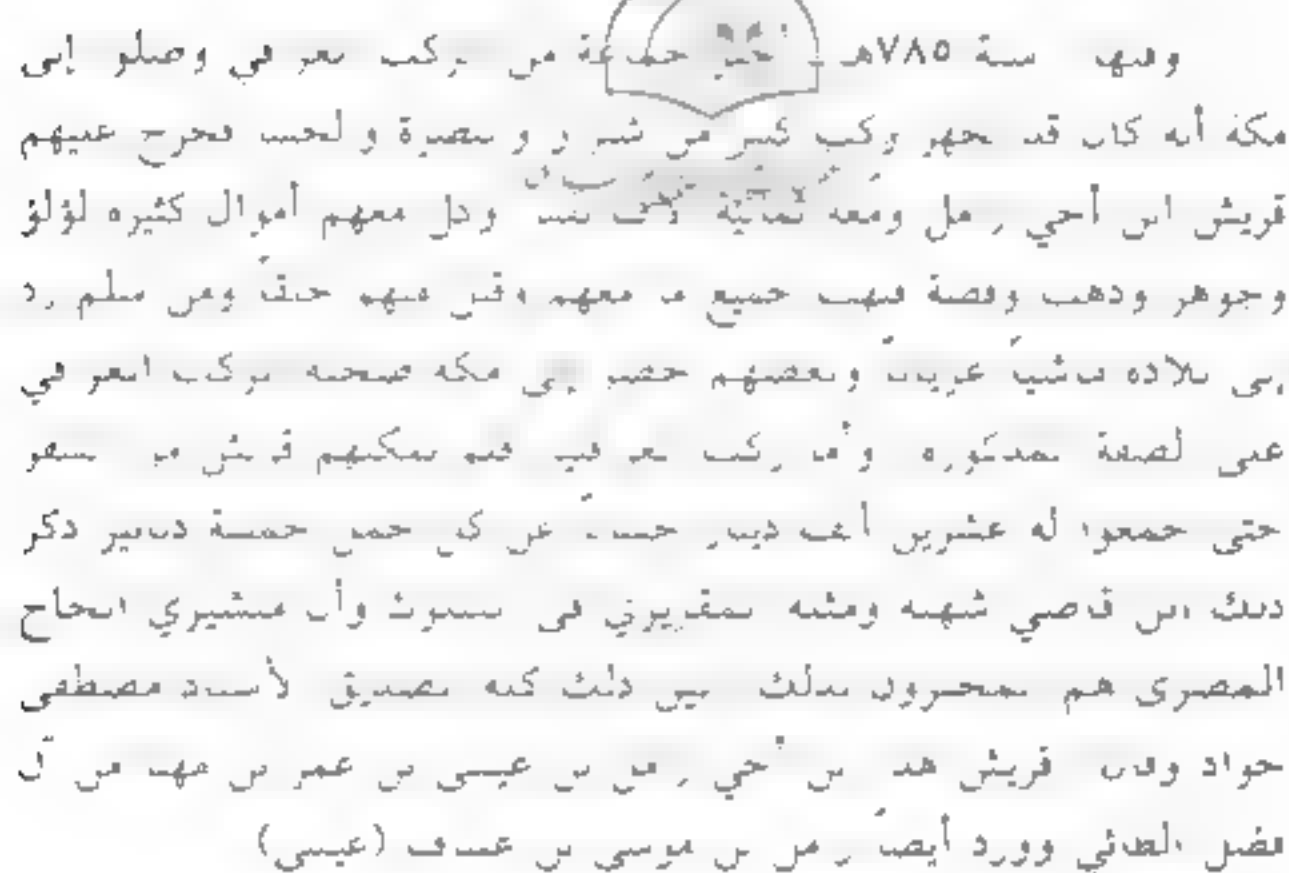 وفيها سنة ٧٨٥هـ أخبر جماعة من الركب العراقي وصلوا إلى
مكة أنه كان قد تجهز ركب كبير من شيراز والبصرة والحسا فخرج عليهم
قريش ابن أخي زامل ومعه ثمانية آلاف نفس وكان معهم أموال كثيرة لؤلؤ
وجوهر وذهب وفضة فنهب جميع ما معهم وقتل منهم خلقاً ومن سلم رد
إلى بلاده ماشياً عرياناً وبعضهم حضر إلى مكة صحبة الركب العراقي
على الصفة المذكورة وأما ركب العراق فلم يمكنهم قريش من السفر
حتى جمعوا له عشرين ألف دينار حساباً عن كل جمل خمسة دنانير ذكر
ذلك ابن قاضي شهبة ومثله المقريزي في السلوك وأن مبشري الحاج
المصري هم المخبرون بذلك بين ذلك كله الصديق الأستاذ مصطفى
جواد وقال قريش هذا ابن أخي زامل بن عيسى بن عمر بن مهنا من آل
فضل الطائي وورد أيضاً زامل بن موسى بن عساف (عيسى)